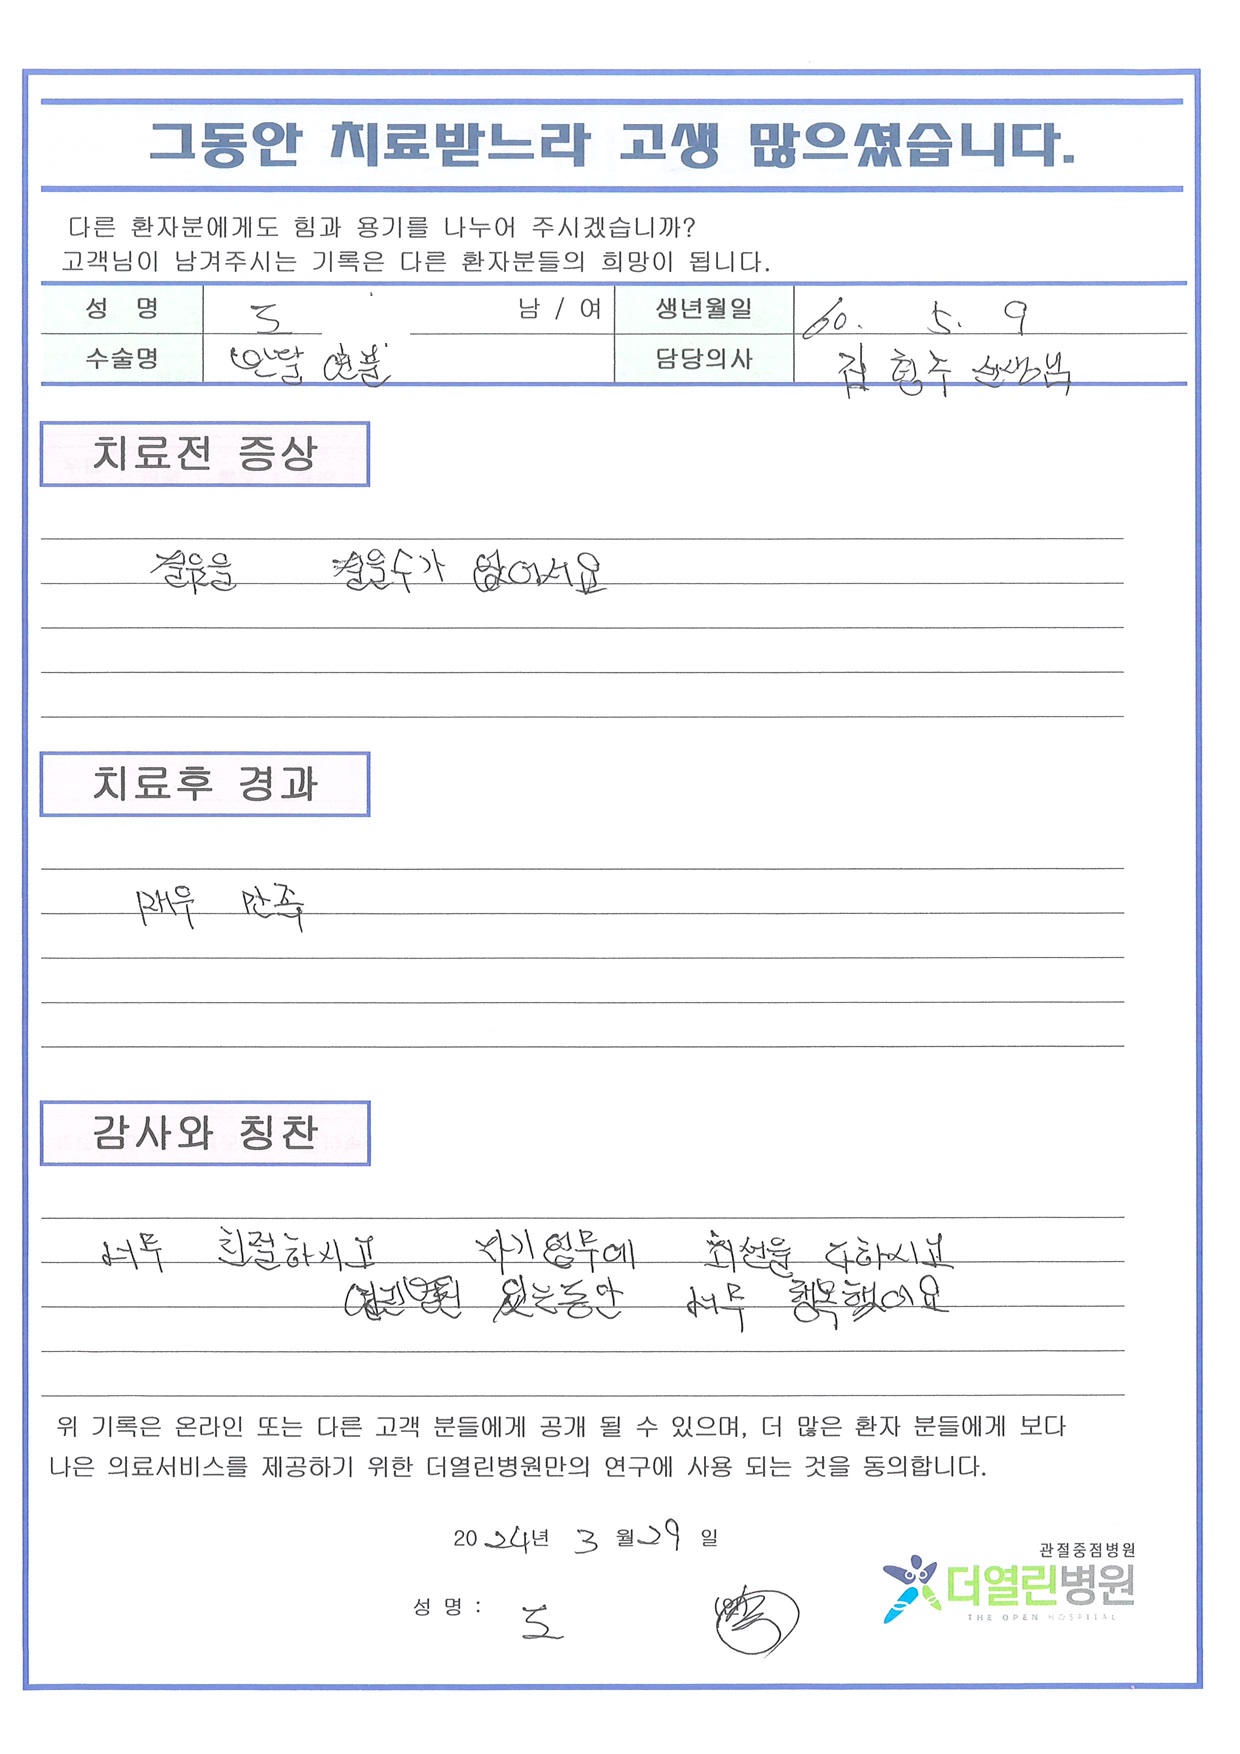 그동안 치료받느라 고생 많으셨습니다.
다른 환자분에게도 힘과 용기를 나누어 주시겠습니까?
고객님이 남겨주시는 기록은 다른 환자분들의 희망이 됩니다.
성 명 도 남 / 여 생년월일 60. 5. 9
수술명 반달 연골 담당의사 김형주 선생님
치료전 증상
걸음을 걸을수가 없어서요
치료후 경과
매우 만족
감사와 칭찬
너무 친절하시고 자기업무에 최선을 다하시고
있는동안 너무 행복했어요
위 기록은 온라인 또는 다른 고객 분들에게 공개 될 수 있으며, 더 많은 환자 분들에게 보다
나은 의료서비스를 제공하기 위한 더열린병원만의 연구에 사용 되는 것을 동의합니다.
2024년 3월 29일
관절중점병원
더열린병원
THE OPEN HOSPITAL
성 명 : 도 (인)